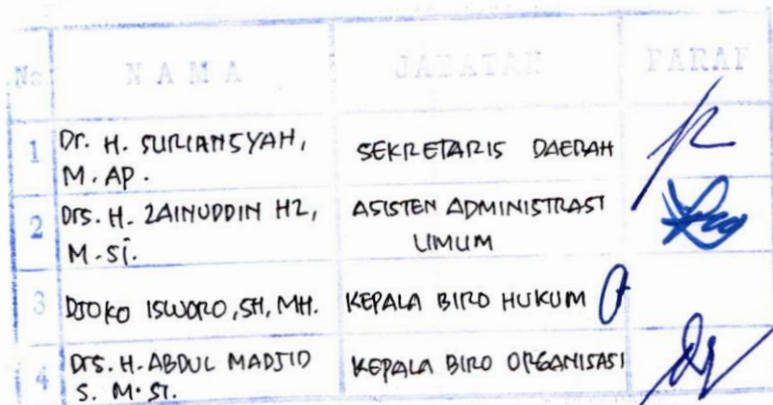 No N A M A JABATAN PARAF
1 Dr. H. SURIANSYAH, SEKRETARIS DAERAH
M. AP.
2 Drs. H. ZAINUDDIN HZ, ASISTEN ADMINISTRASI
M.Si. UMUM
3 DJOKO ISWORO, SH, MH. KEPALA BIRO HUKUM
4 Drs. H. ABDUL MADJID KEPALA BIRO ORGANISASI
S. M.Si.